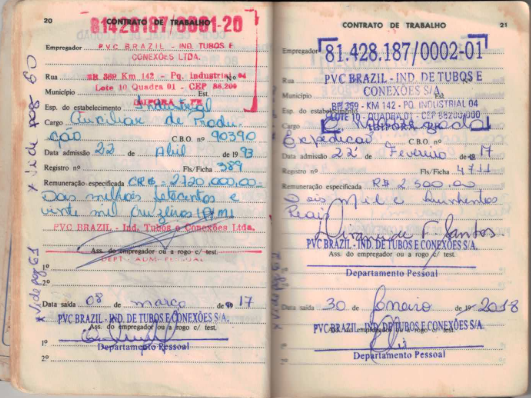 20
CONTRATO DE TRABALHO
81428187/0001-20
Empregador PVC BRAZIL - IND. TUBOS E
CONEXÕES LTDA.
Rua BR 369 Km 142 - Pq. Industrial Nº 04
Lote 10 Quadra 01 - CEP 86.200
Município Est.
IBIPORÃ E PR
Esp. do estabelecimento Industrial
Cargo Auxiliar de Produ-
ção C.B.O. nº 90390
Data admissão 22 de Abril de 1993
Registro nº Fls/Ficha 389
Remuneração especificada CR$ 2.720.000,00
Dois milhões setecentos e
vinte mil cruzeiros p/mês
PVC BRAZIL - Ind. Tubos e Conexões Ltda.
Ass. do empregador ou a rogo c/ test.
1º
2º
Data saída 08 de março de 17
PVC BRAZIL - IND. DE TUBOS E CONEXÕES S/A.
Ass. do empregador ou a rogo c/ test.
1º Departamento Pessoal
2º
21
CONTRATO DE TRABALHO
81.428.187/0002-01
Empregador
Rua PVC BRAZIL - IND DE TUBOS E
CONEXÕES S/A.
Município Est.
BR 369 - KM 142 - PQ. INDUSTRIAL 04
Esp. do estabelecimento
LOTE 10 - QUADRA 01 - CEP 86200-000
Cargo
Expedição C.B.O. nº
Data admissão 22 de Fevereiro de 17
Registro nº Fls/Ficha 4711
Remuneração especificada R$ 2.500.00
Dois mil e Quinhentos
Reais
PVC BRAZIL - IND. DE TUBOS E CONEXÕES S/A.
Ass. do empregador ou a rogo c/ test.
1º Departamento Pessoal
2º
Data saída 30 de Janeiro de 2018
PVC BRAZIL - IND. DE TUBOS E CONEXÕES S/A.
Ass. do empregador ou a rogo c/ test.
1º Departamento Pessoal
2º